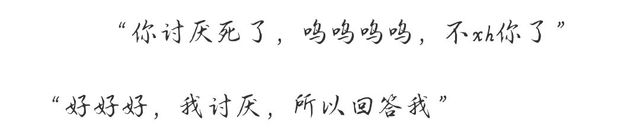 “你讨厌死了，呜呜呜呜，不xh你了”
“好好好，我讨厌，所以回答我”